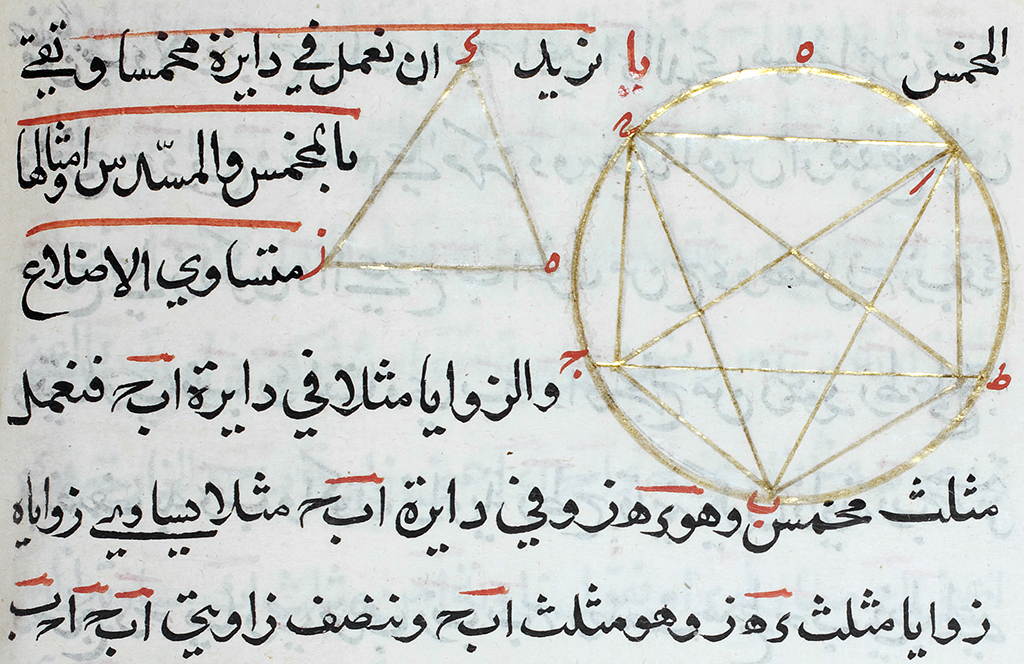 المخمس يا نريد ان نعمل في دايرة مخمسا ونقي
بالمخمس والمسدس وامثالها
متساوي الاضلاع
والزوايا مثلا في دايرة ابح فنعمل
مثلث مخمس وهو ءه ز وفي دايرة ابح مثلا يساوي زواياه
زوايا مثلث ءه ز وهو مثلث ابح وننصف زاويتي ابح احب
ه
ح
ء
ر
ز
ه
ج
ط
ب